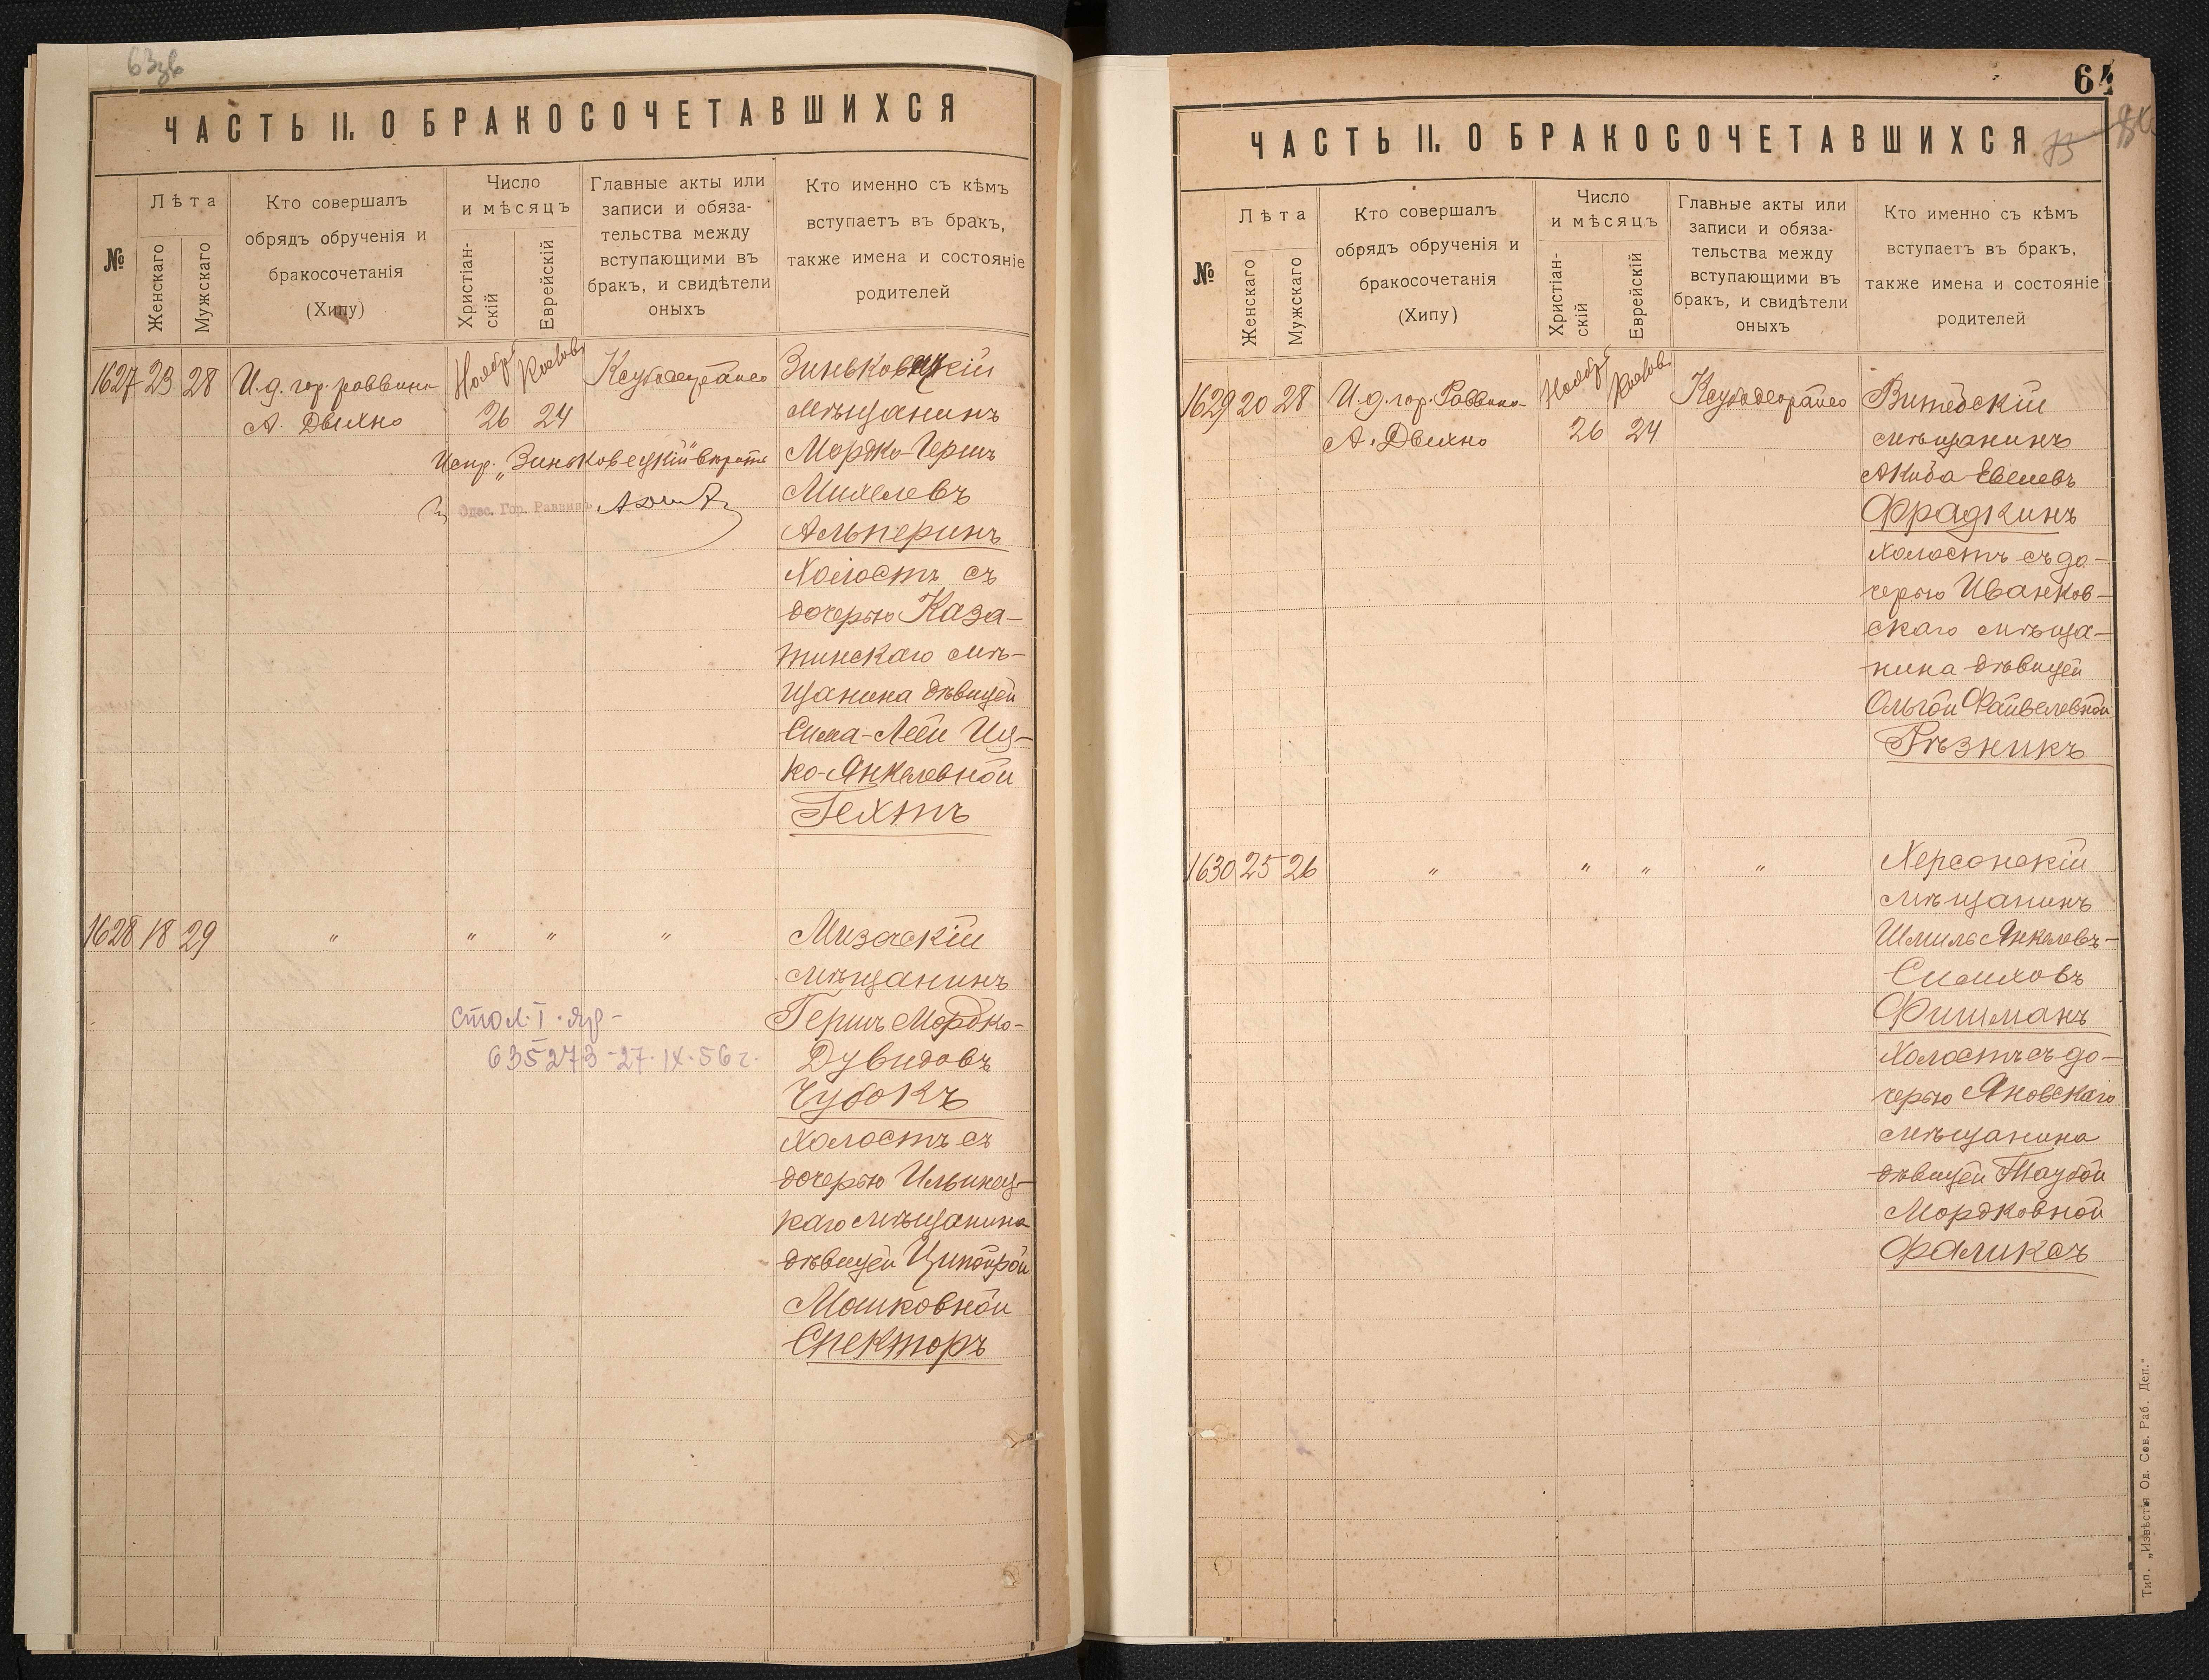 ЧАСТЬ II. О БРАКОСОЧЕТАВШИХСЯ
№
Лѣта
Женскаго
Мужскаго
Кто совершалъ
обрядъ обрученія и
бракосочетанія
(Хипу)
Число
и мѣсяцъ
Христіан-
скій
Еврейскій
Главные акты или
записи и обяза-
тельства между
вступающими въ
бракъ, и свидѣтели
оныхъ
Кто именно съ кѣмъ
вступаетъ въ бракъ,
также имена и состояніе
родителей
1627 23 28
И.д. гор. раввина
А. Двихно
Ноябр
26
24
Испр. "Зиньковецкій" вѣрить
Одес. Гор. Раввинъ
Зиньковецкій
мѣщанинъ
Мордко-Герш
Михелевъ
Альперинъ
холостъ съ
дочерью Каза-
тинскаго мѣ-
щанина дѣвицей
Сима-Леей Иц-
ко-Янкелевной
Гехтъ
1628 18 29
" " " "
стол. I.
635273-27.IX.56 г.
мѣщанинъ
Гершъ Мордко-
Дувидовъ
Чубокъ
холостъ съ
дочерью Ильинец-
каго мѣщанина
дѣвицей Ципойрой
Мошковной
Спекторъ
64
ЧАСТЬ II. О БРАКОСОЧЕТАВШИХСЯ
№
Лѣта
Женскаго
Мужскаго
Кто совершалъ
обрядъ обрученія и
бракосочетанія
(Хипу)
Число
и мѣсяцъ
Христіан-
скій
Еврейскій
Главные акты или
записи и обяза-
тельства между
вступающими въ
бракъ, и свидѣтели
оныхъ
Кто именно съ кѣмъ
вступаетъ въ бракъ,
также имена и состояніе
родителей
1629 20 28
И.д. гор. Раввина
А. Двихно
Ноябр
26
24
Витебскій
мѣщанинъ
Акиба Евелевъ
Фрадкинъ
холостъ съ до-
черью Иванков-
скаго мѣща-
нина дѣвицей
Ольгой Файвелевной
Рѣзникъ
1630 25 26
" " " "
Херсонскій
мѣщанинъ
Шмиль Янкелевъ-
Симховъ
Фишманъ
холостъ съ до-
черью Яновскаго
мѣщанина
дѣвицей Таубой
Мордковной
Фаликсъ
Тип. „Извѣстія Од. Сов. Раб. Деп."